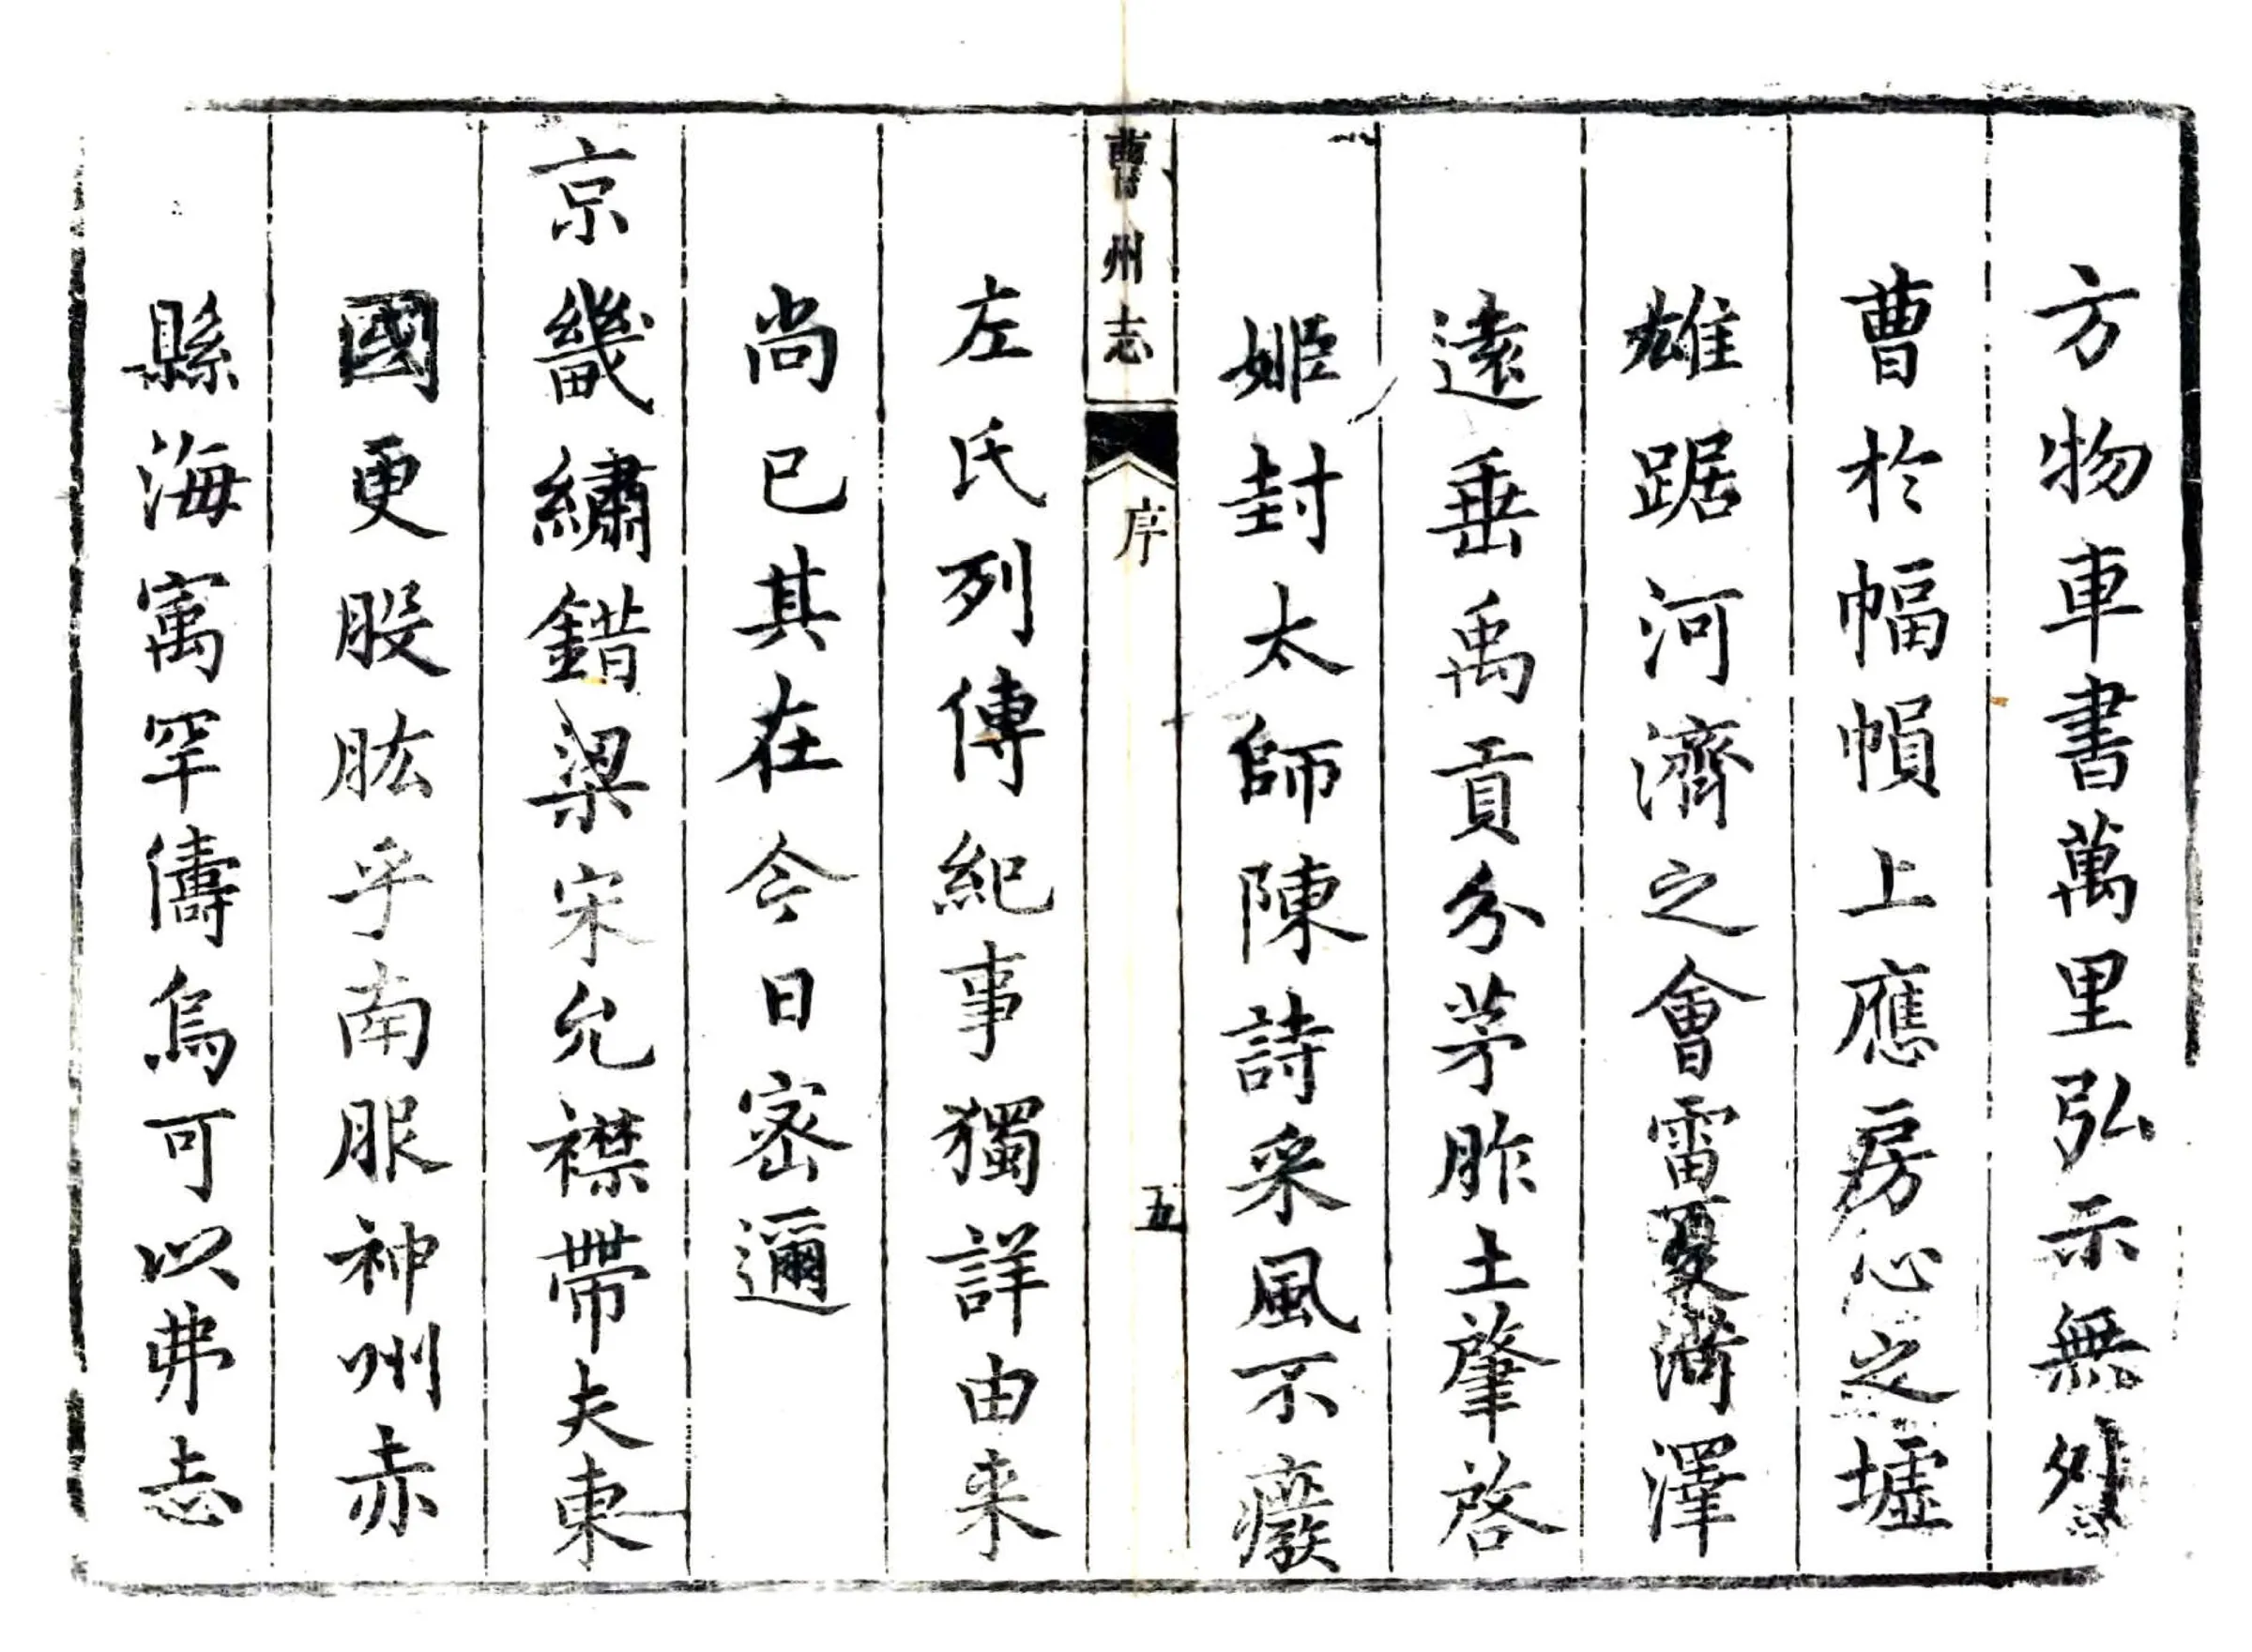 方物車書萬里弘示無外
曹於幅幀上應房心之墟
雄踞河濟之會雷夏滿澤
遠垂禹貢分茅胙土肇啓
姬封太師陳詩采風不癈
曹州志 序 五
左氏列傳紀事獨詳由来
尚已其在今日密邇
京畿繡錯梁宋允襟帶夫東
國更股肱乎南服神州赤
縣海寓罕儔烏可以弗志